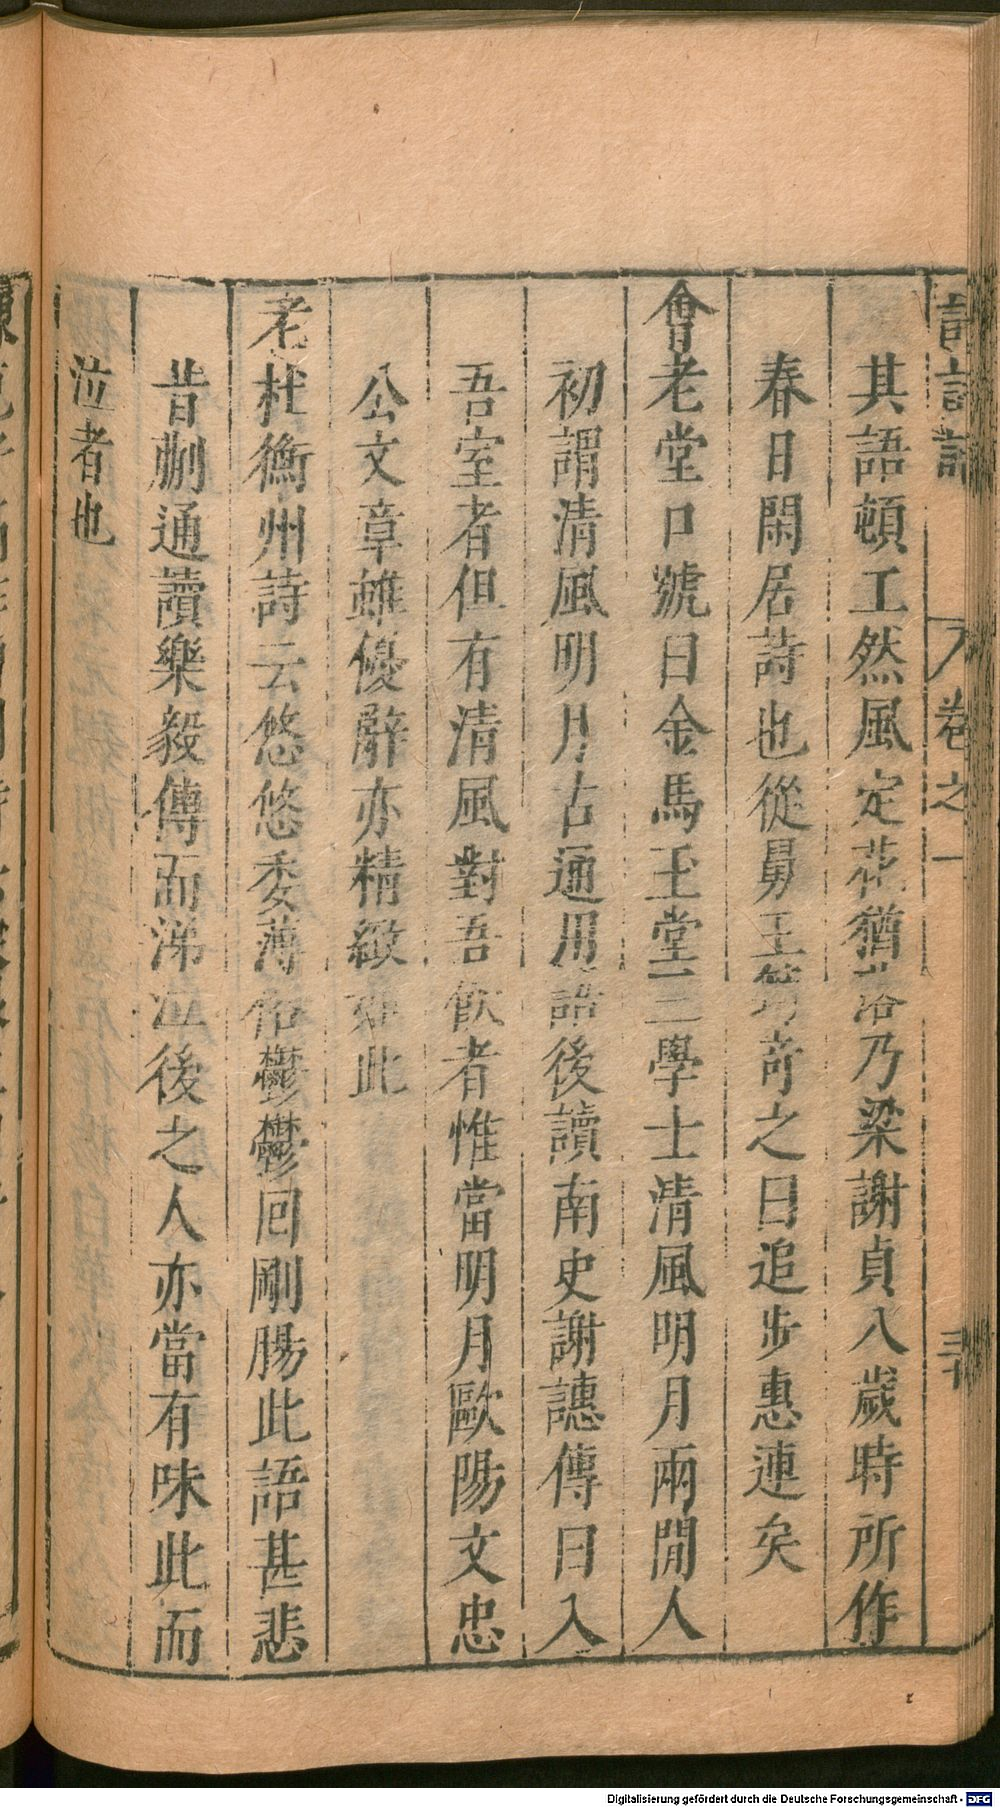 卷之一
其語頓工然風定花猶落乃梁謝貞八歲時所作
春日閑居詩也從舅王筠奇之曰追步惠連矣
會老堂口號曰金馬玉堂三學士清風明月兩閒人
初謂清風明月古通用語後讀南史謝譓傳曰入
吾室者但有清風對吾飲者惟當明月歐陽文忠
公文章雖優辭亦精緻如此
老杜衡州詩云悠悠委薄俗鬱鬱回剛腸此語甚悲
昔蒯通讀樂毅傳而涕泣後之人亦當有味此而
泣者也
Digitalisierung gefördert durch die Deutsche Forschungsgemeinschaft - DFG